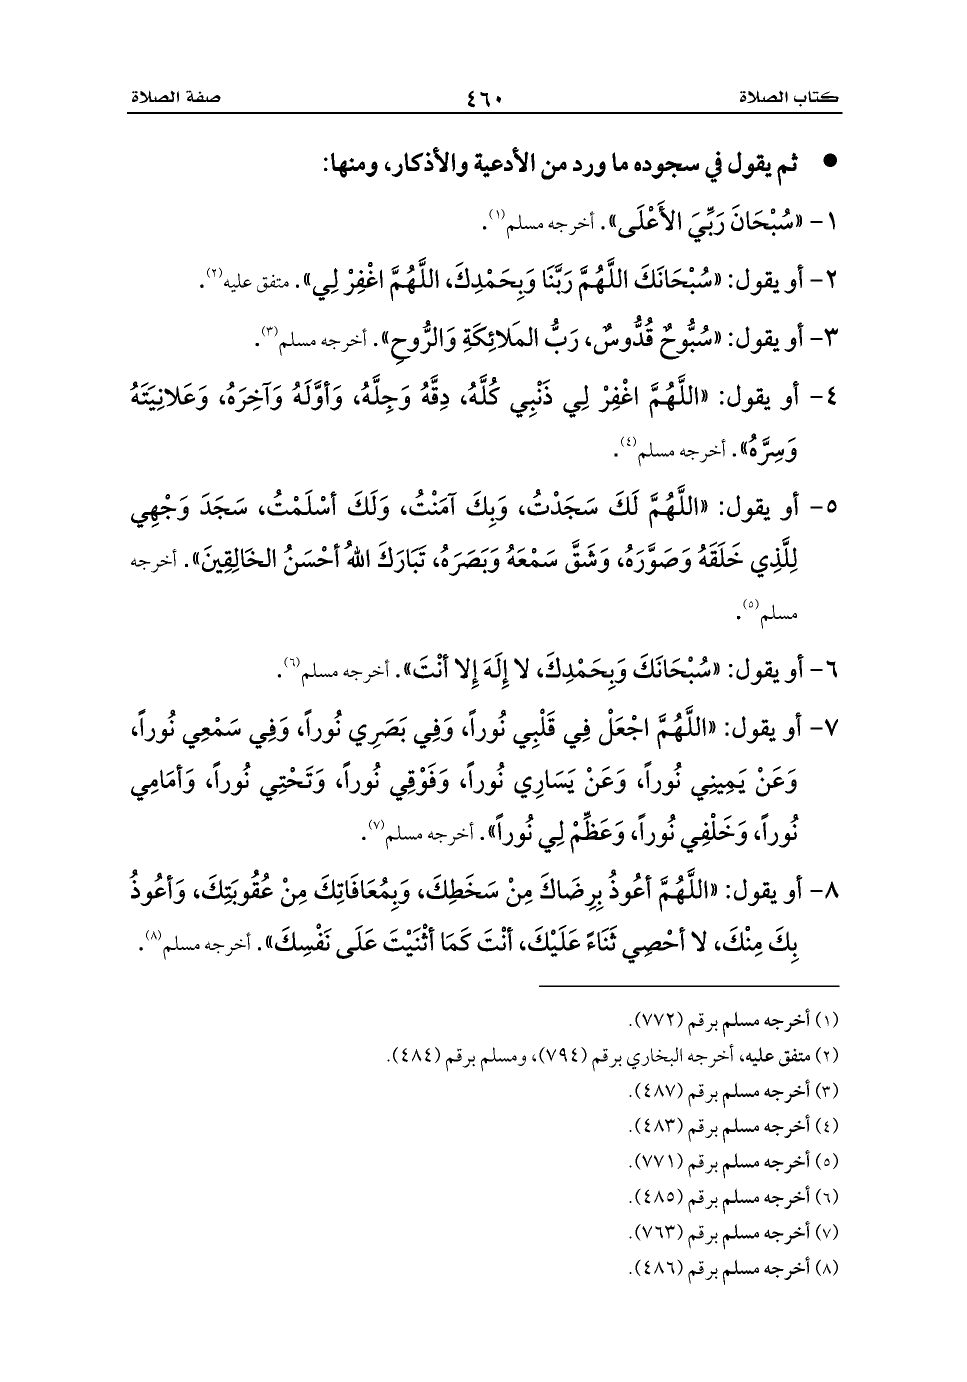 كتاب الصلاة ٤٦٠ صفة الصلاة
● ثم يقول في سجوده ما ورد من الأدعية والأذكار، ومنها:
١- «سُبْحَانَ رَبِّيَ الأَعْلَى». أخرجه مسلم(١).
٢- أو يقول: «سُبْحَانَكَ اللَّهُمَّ رَبَّنَا وَبِحَمْدِكَ، اللَّهُمَّ اغْفِرْ لِي». متفق عليه(٢).
٣- أو يقول: «سُبُّوحٌ قُدُّوسٌ، رَبُّ المَلائِكَةِ وَالرُّوحِ». أخرجه مسلم(٣).
٤- أو يقول: «اللَّهُمَّ اغْفِرْ لِي ذَنْبِي كُلَّهُ، دِقَّهُ وَجِلَّهُ، وَأوَّلَهُ وَآخِرَهُ، وَعَلانِيَتَهُ
وَسِرَّهُ». أخرجه مسلم(٤).
٥- أو يقول: «اللَّهُمَّ لَكَ سَجَدْتُ، وَبِكَ آمَنْتُ، وَلَكَ أسْلَمْتُ، سَجَدَ وَجْهِي
لِلَّذِي خَلَقَهُ وَصَوَّرَهُ، وَشَقَّ سَمْعَهُ وَبَصَرَهُ، تَبَارَكَ اللهُ أحْسَنُ الخَالِقِينَ». أخرجه
مسلم(٥).
٦- أو يقول: «سُبْحَانَكَ وَبِحَمْدِكَ، لا إلَهَ إلا أنْتَ». أخرجه مسلم(٦).
٧- أو يقول: «اللَّهُمَّ اجْعَلْ فِي قَلْبِي نُوراً، وَفِي بَصَرِي نُوراً، وَفِي سَمْعِي نُوراً،
وَعَنْ يَمِينِي نُوراً، وَعَنْ يَسَارِي نُوراً، وَفَوْقِي نُوراً، وَتَحْتِي نُوراً، وَأمَامِي
نُوراً، وَخَلْفِي نُوراً، وَعَظِّمْ لِي نُوراً». أخرجه مسلم(٧).
٨- أو يقول: «اللَّهُمَّ أعُوذُ بِرِضَاكَ مِنْ سَخَطِكَ، وَبِمُعَافَاتِكَ مِنْ عُقُوبَتِكَ، وَأعُوذُ
بِكَ مِنْكَ، لا أحْصِي ثَنَاءً عَلَيْكَ، أنْتَ كَمَا أثْنَيْتَ عَلَى نَفْسِكَ». أخرجه مسلم(٨).
(١) أخرجه مسلم برقم (٧٧٢).
(٢) متفق عليه، أخرجه البخاري برقم (٧٩٤)، ومسلم برقم (٤٨٤).
(٣) أخرجه مسلم برقم (٤٨٧).
(٤) أخرجه مسلم برقم (٤٨٣).
(٥) أخرجه مسلم برقم (٧٧١).
(٦) أخرجه مسلم برقم (٤٨٥).
(٧) أخرجه مسلم برقم (٧٦٣).
(٨) أخرجه مسلم برقم (٤٨٦).